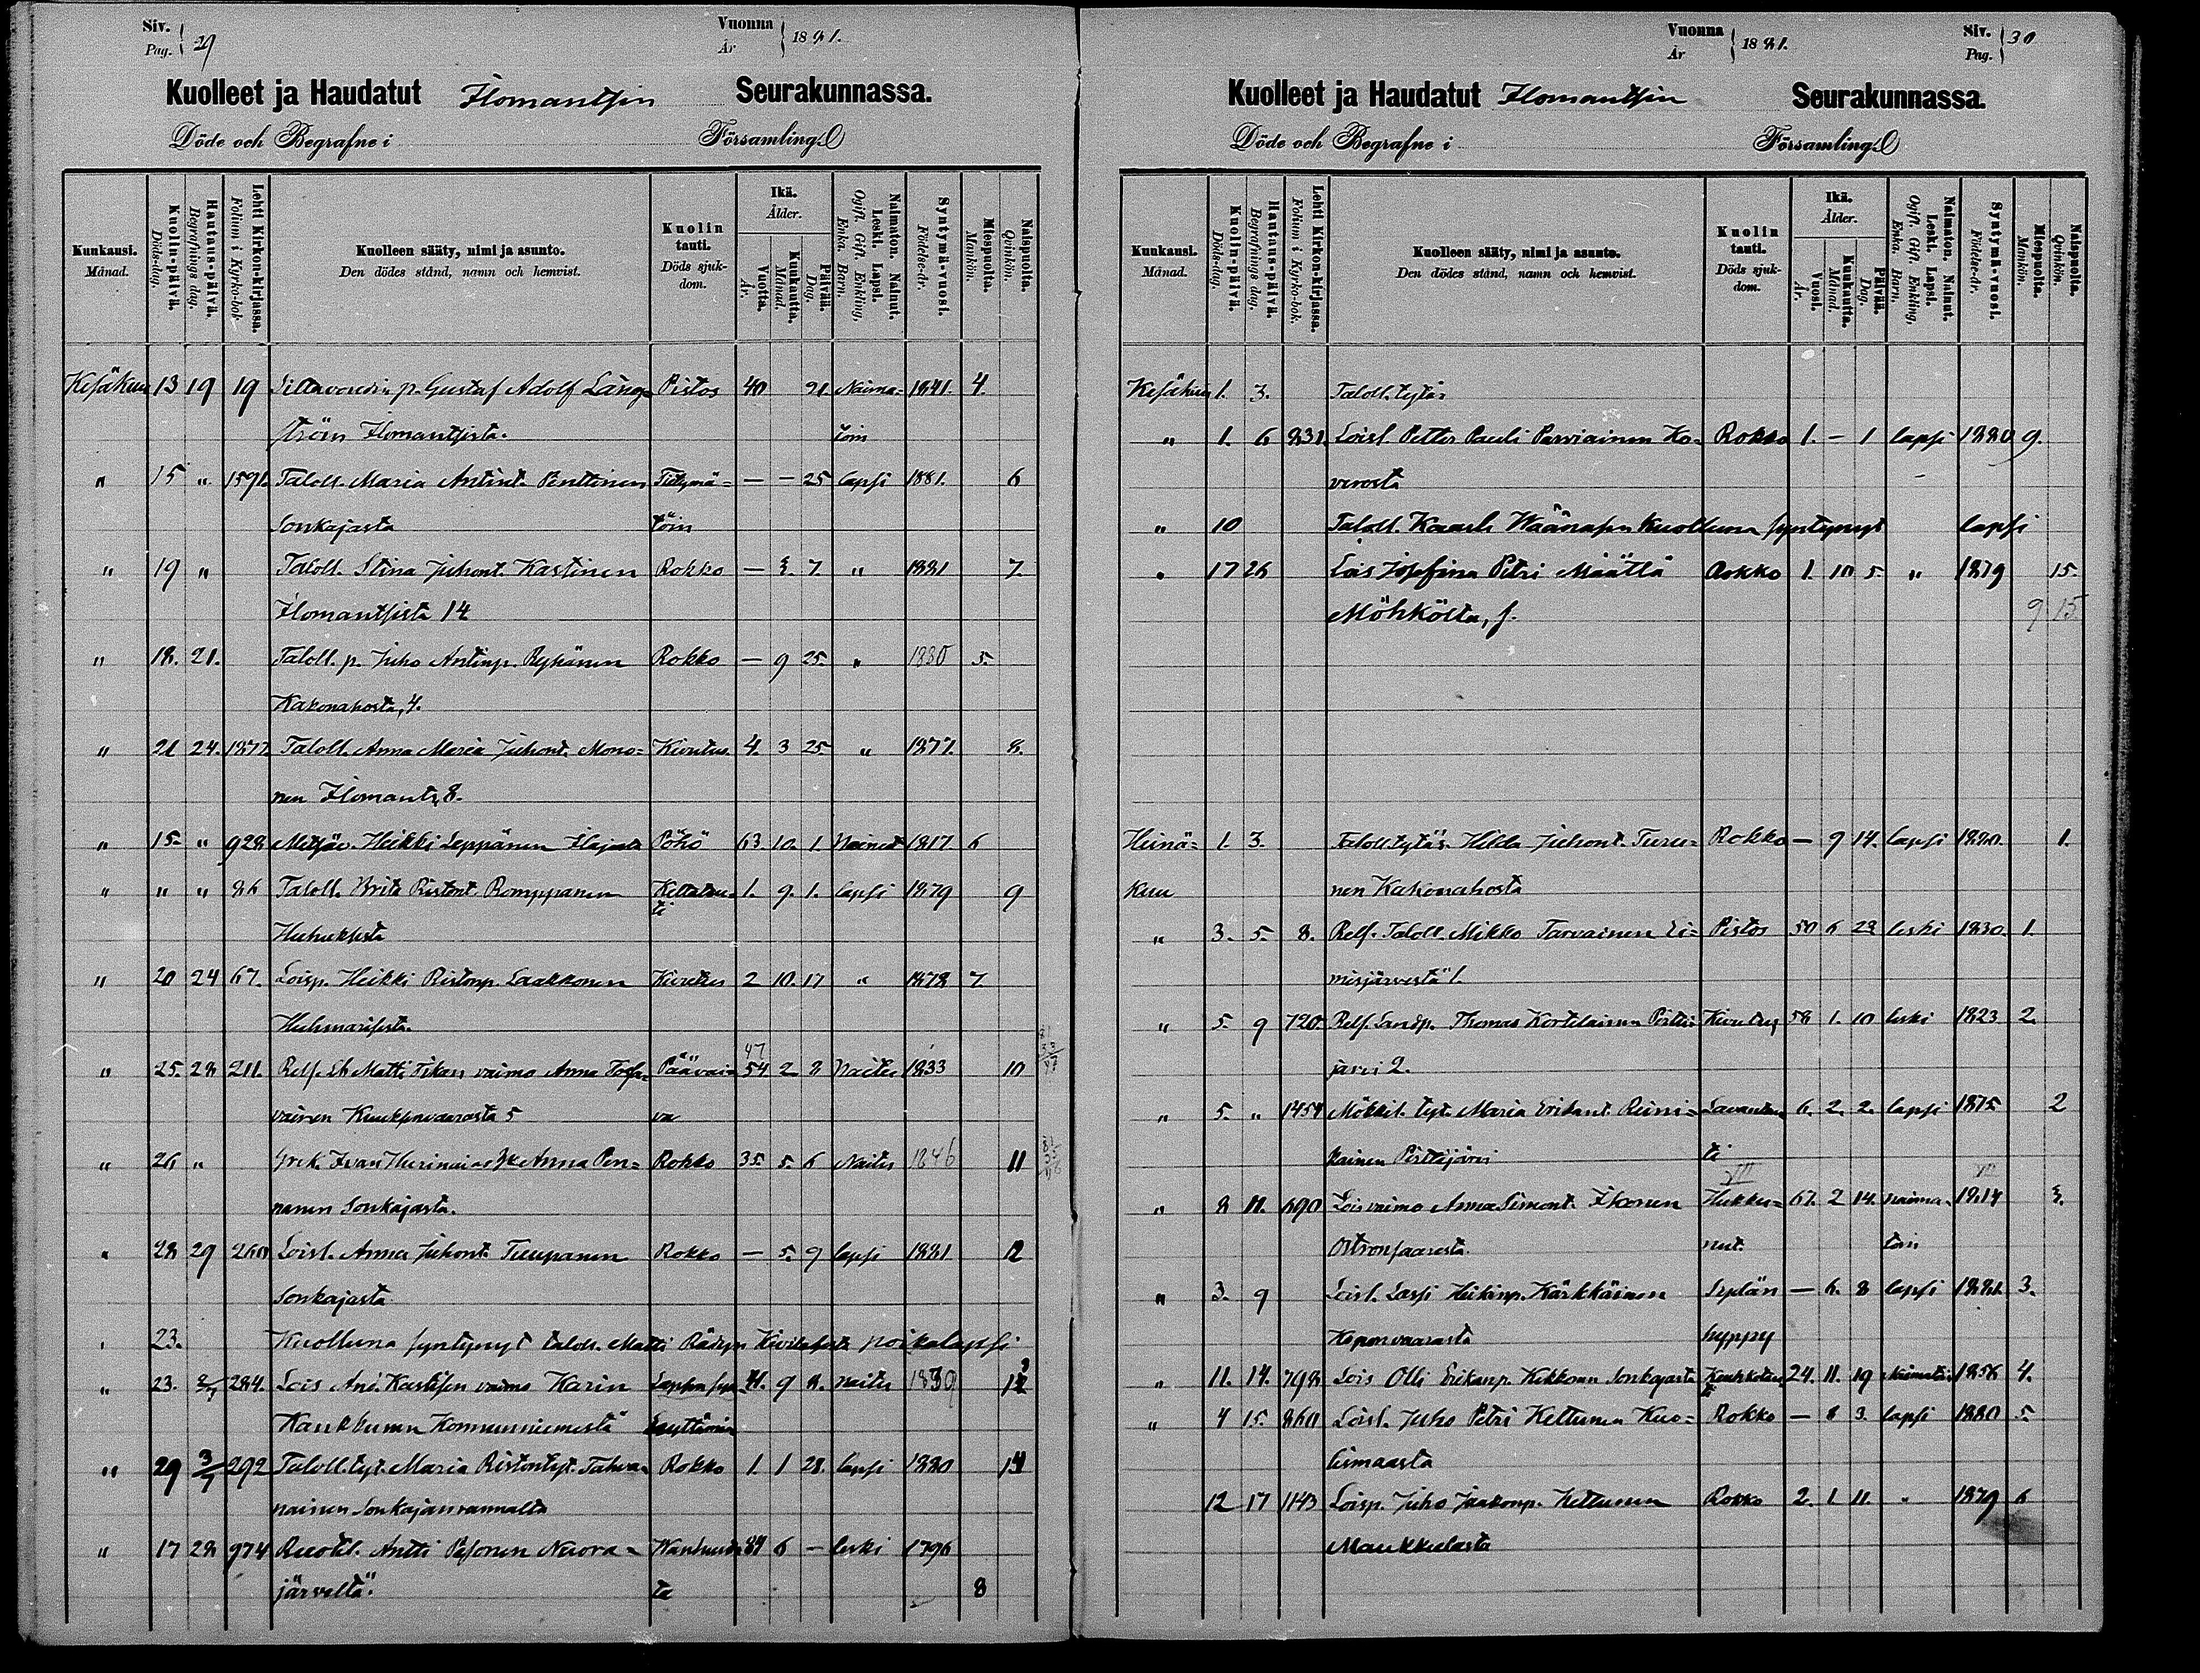 Siv. Pag. 29
Vuonna År 1881.
Kuolleet ja Haudatut Ilomantsin Seurakunnassa.
Döde och Begrafne i Församling.
Kuukausi. Månad.
Kuolin-päivä. Döds-dag.
Hautaus-päivä. Begrafnings dag.
Lehti Kirkon-kirjassa. Folium i Kyrko-bok.
Kuolleen sääty, nimi ja asunto. Den dödes stånd, namn och hemvist.
Kuolin tauti. Döds sjuk-dom.
Ikä. Ålder.
Vuotta. År.
Kuukautta. Månad.
Päivää. Dag.
Naimaton. Nainut. Leski. Lapsi. Ogift. Gift. Enkling, Enka. Barn.
Syntymä-vuosi. Födelse-år.
Miespuolta. Mankön.
Naispuolta. Qvinkön.
Kesäkuu 13 19 19 p. Gustaf Adolf Läng= Pistos 40 21 Naima= 1841. 4.
ström Ilomantsista. toin
" 15 " 1591. Taloll. Maria Antint. Penttinen Tietymä= — — 25 lapsi 1881. 6
Sonkajasta töin
" 19 " Taloll. Stina Juhont. Kastinen Rokko — 3. 7. " 1881 7.
Ilomantsista 14
" 18. 21. Taloll. p. Juho Antinp. Ryhänen Rokko — 9 25. " 1880 5.
Kakonahosta, 4.
" 21 24. 1877 Taloll. Anna Maria Juhont. Mono= Kivutus 4. 3 25. " 1877. 8.
nen Ilomants, 8.
" 15. " 928 Heikki Leppänen Pöhö 63. 10. 1. Nainut 1817 6
" " " 86 Taloll. Brita Ristont. Romppanen Keltatau= 1. 9. 1. lapsi 1879 9
ti
Huhuksista
" 20 24 67. Loisp. Heikki Ristonp. Laakkonen Kivutus 2 10. 17 " 1878 7
Huhmarisista.
47
" 25. 28 211. Matti vaimo Anna Päävai= 54 2 8 Naitu 1833 10
vainen 5 va
" 26 " Grek. Ivan Anna Pen= Rokko 35. 5. 6 Naitu 1846 11
nanen Sonkajasta.
" 28 29 260 Loisl. Anna Juhont. Tuupanen Rokko — 5. 9 lapsi 1881 12
Sonkajasta
" 23. Kuolluna syntynyt taloll. Matti Räsyn poikalapsi
" 23. 2/7 284. Lois And. Kastisen vaimo Karin 41. 9 8. naitu 1839 13
Kankkunen Kommunniemestä
" 29 3/7 292 Taloll. tyt. Maria Ristontyt. Tahva= Rokko 1. 1 28. lapsi 1880 14
nainen Sonkajanrannalta
" 17 28 974 Ruotil. Antti Pesonen Nuora= Wanhuude 84 6 — leski 1796
järveltä. ta 8
Vuonna År 1881.
Siv. Pag. 30
Kuolleet ja Haudatut Ilomantsin Seurakunnassa.
Döde och Begrafne i Församling.
Kuukausi. Månad.
Kuolin-päivä. Döds-dag.
Hautaus-päivä. Begrafnings dag.
Lehti Kirkon-kirjassa. Folium i Kyrko-bok.
Kuolleen sääty, nimi ja asunto. Den dödes stånd, namn och hemvist.
Kuolin tauti. Döds sjuk-dom.
Ikä. Ålder.
Vuosi. År.
Kuukautta. Månad.
Päivää. Dag.
Naimaton. Nainut. Leski. Lapsi. Ogift. Gift. Enkling, Enka. Barn.
Syntymä-vuosi. Födelse-år.
Miespuolta. Mankön.
Naispuolta. Qvinkön.
Kesäkuu 1. 3. Taloll. tytär
" 1. 6 831. Loisl. Petter Pauli Parviainen Ko= Rokko 1. — 1 lapsi 1880 9.
verosta
" 10 Taloll. Kaarli Wäänäsen kuolluna syntynyt lapsi
" 17 26 Lois Josfina Petri Määttä Rokko 1. 10 5. " 1879 15.
Möhkölta, f. 9 15
Heinä= 1. 3. Taloll. tytär. Hilda Juhont. Turu= Rokko — 9 14. lapsi 1880. 1.
kuu nen Kakonahosta
" 3. 5. 8. Relf. Taloll. Mikko Tarvainen Li= Pistos 50 6 23 leski 1830. 1.
misjärvestä 1.
" 5. 9 720. Relf. Thomas Kortelainen Kivutus 58 1. 10 leski 1823 2.
järvi 2.
" 5. " 1454 Mökkil. tyt. Maria Erikant. Reini= Lavantau 6. 2. 2. lapsi 1875 2
kainen Pirttijärvi ti
" 8 11. 690 Lois vaimo Anna Simont. Ikonen Hukku= 67. 2 14. naima= 1814 3.
Ostronsaaresta. nut. ton
" 3. 9 Loisl. Lassi Heikinp. Kärkkäinen Sydän — 6. 8 lapsi 1881. 3.
Koponvaarasta hyppy
" 11. 14. 798 Lois Olli Erikanp. Kokkonen Sonkajasta 24. 11. 19 1856 4.
" 4 15. 860 Loisl. Juho Petri Kettunen Kuo= Rokko — 8 3. lapsi 1880 5.
lismaasta
12 17 1143 Loisp. Juho Jaakonp. Kettunen Rokko 2. 1. 11. " 1879 6
Maukkulasta